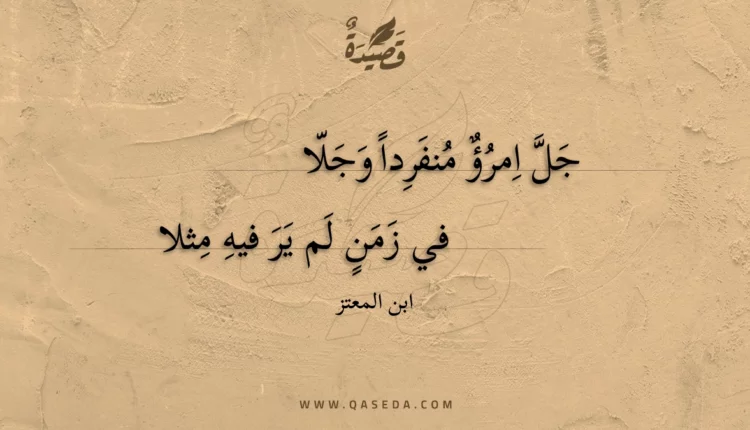 قَصِيدَةٌ
جَلَّ اِمرُؤٌ مُنفَرِداً وَجَلّا
في زَمَنٍ لَم يَرَ فيهِ مِثلا
ابن المعتز
WWW.QASEDA.COM